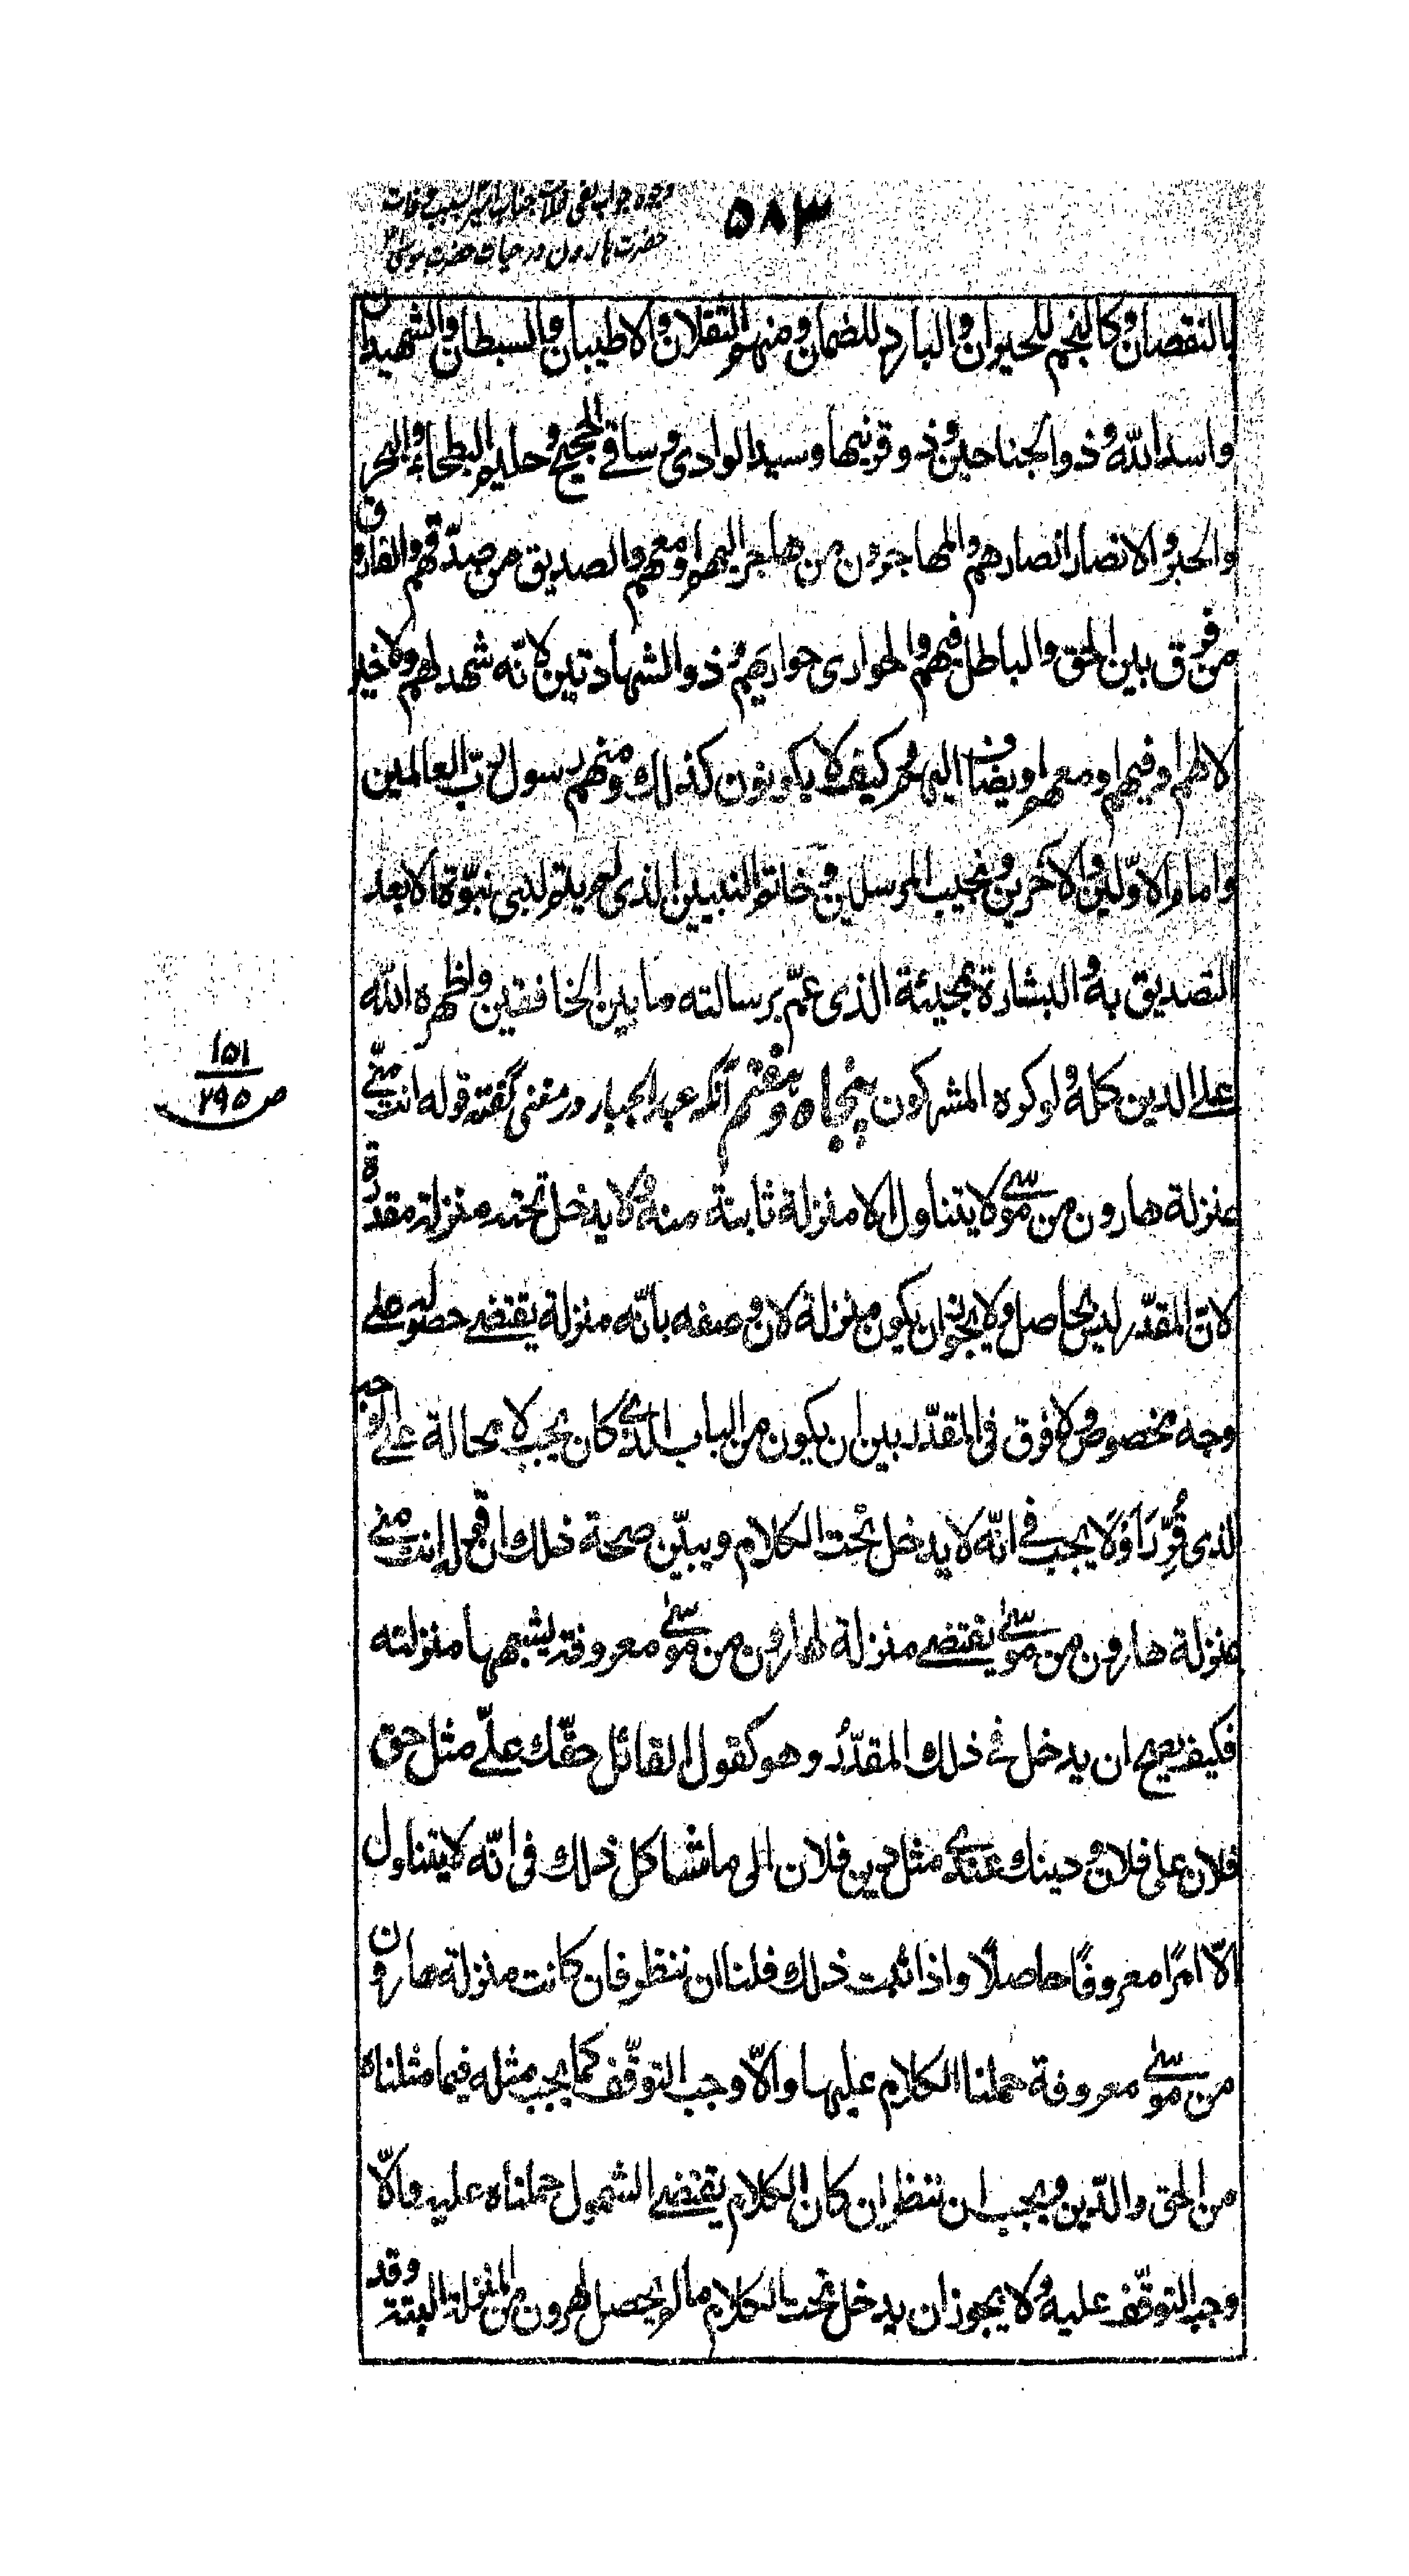 ۵۸۳
وجوه جواب نفی خلافت جناب امیر بسبب وفات
حضرت هارون در حیات حضرت موسی
بالنقصان وكالنجم للحيران والبارد للظمان ومنهم الثقلان والاطيبان والسبطان والشهيدان
واسد الله وذو الجناحين وذو قرنيها وسيد الوادى وساقى الحجيج وحليم البطحاء والبحر
والحبر والانصار انصارهم والمهاجرون من هاجر اليهم او معهم والصديق من صدّقهم والفاروق
من فرق بين الحق والباطل فيهم والحوارى حواريهم وذو الشهادتين لانّه شهد لهم ولا خير
الا لهم او فيهم او معهم او يضاف اليهم وكيف لا يكونون كذلك ومنهم رسول ربّ العالمين
وامام الاوّلين والآخرين ونجيب المرسلين وخاتم النبيين الذى لم يتم لنبى نبوّة الا بعد
التصديق به والبشارة بمجيئه الذى عمّ برسالته ما بين الخافقين واظهره الله
على الدين كله ولو كره المشركون پنجاه و هفتم آنكه عبد الجبار در مغنى گفته قوله انت منّى
بمنزلة هارون من موسى لا يتناول الا منزلة ثابتة منه ولا يدخل تحته منزلة مقدرة
لانّ المقدّر ليس بحاصل ولا يجوز ان يكون منزلة لان وصفه بانّه منزلة يقتضى حصوله على
وجه مخصوص ولا فرق فى المقدّر بين ان يكون من الباب الذى كان يجب لا محالة على الوجه
الذى قُرِّرَ اَوْ لا يجب فى انّه لا يدخل تحت الكلام ويبيّن صحة ذلك ان قوله انت منى
بمنزلة هارون من موسى يقتضى منزلة لهارون من موسى معروفة يشبهها منزلته
فكيف يصح ان يدخل فى ذلك المقدّرُ وهو كقول القائل حقّك علىّ مثل حق
فلان على فلان ودينك عندى مثل دين فلان الى ما شاكل ذلك فى انّه لا يتناول
الّا امرًا معروفًا حاصلًا واذا ثبت ذلك فلنا ان ننظر فان كانت منزلة هارون
من موسى معروفة حملنا الكلام عليها والّا وجب التوقّف كما يجب مثله فيما مثلناه
من الحق والدّين ويجب ان ننظر ان كان الكلام يقتضى الشمول حملناه عليه والّا
وجب التوقّف عليه ولا يجوز ان يدخل تحت الكلام ما لم يحصل لهرون من المنزلة البتة وقد
۱۵۱
ص ۲۹۵